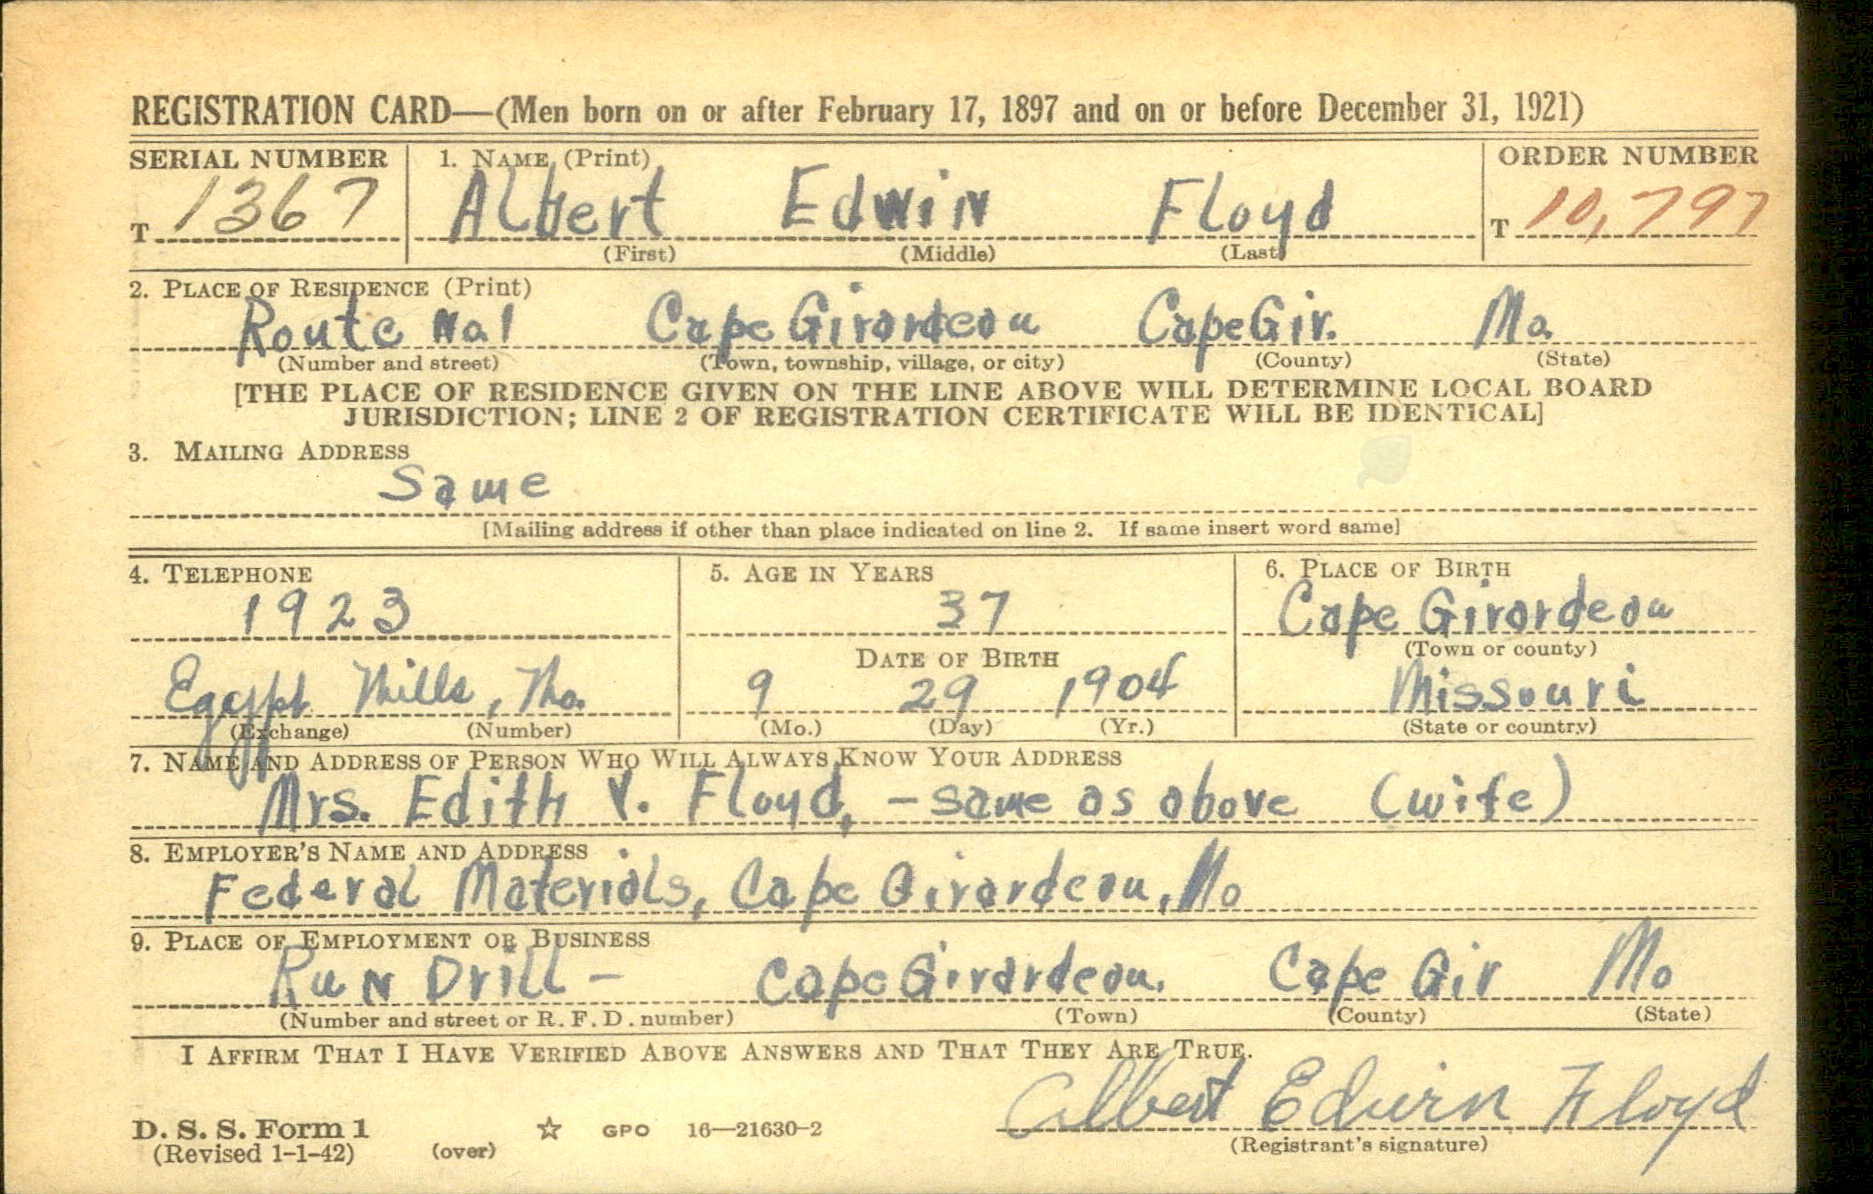 REGISTRATION CARD—(Men born on or after February 17, 1897 and on or before December 31, 1921)
SERIAL NUMBER 1. NAME (Print) ORDER NUMBER
T 1367 Albert Edwin Floyd T 10,797
(First) (Middle) (Last)
2. PLACE OF RESIDENCE (Print)
Route No. 1 Cape Girardeau Cape Gir. Mo.
(Number and street) (Town, township, village, or city) (County) (State)
[THE PLACE OF RESIDENCE GIVEN ON THE LINE ABOVE WILL DETERMINE LOCAL BOARD
JURISDICTION; LINE 2 OF REGISTRATION CERTIFICATE WILL BE IDENTICAL]
3. MAILING ADDRESS
Same
[Mailing address if other than place indicated on line 2. If same insert word same]
4. TELEPHONE 5. AGE IN YEARS 6. PLACE OF BIRTH
1923 37 Cape Girardeau
DATE OF BIRTH (Town or county)
Egypt Mills, Mo. 9 29 1904 Missouri
(Exchange) (Number) (Mo.) (Day) (Yr.) (State or country)
7. NAME AND ADDRESS OF PERSON WHO WILL ALWAYS KNOW YOUR ADDRESS
Mrs. Edith V. Floyd, – same as above (wife)
8. EMPLOYER'S NAME AND ADDRESS
Federal Materials, Cape Girardeau, Mo
9. PLACE OF EMPLOYMENT OR BUSINESS
Run Drill – Cape Girardeau. Cape Gir Mo
(Number and street or R. F. D. number) (Town) (County) (State)
I AFFIRM THAT I HAVE VERIFIED ABOVE ANSWERS AND THAT THEY ARE TRUE.
Albert Edwin Floyd
D. S. S. Form 1 ☆ GPO 16—21630-2
(Revised 1-1-42) (over) (Registrant's signature)